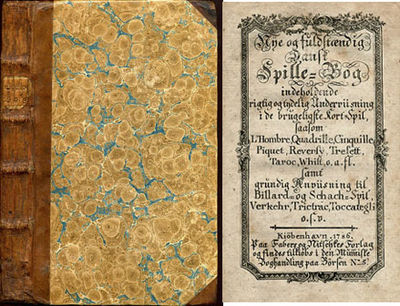 Nye og fuldstændig
Dansk
Spille-Bog
indeholdende
rigtig og tydelig Underviisning
i de brugeligste Kort-Spil,
saasom
L'Hombre, Quadrille, Cinquille,
Piquet, Reversy, Tresett,
Taroc, Whist, o. a. fl.
samt
gründig Anviisning til
Billard- og Schach-Spil,
Verkehr, Trictrac, Toccategli
o. s. v.
Kiöbenhavn, 1786.
Paa Fabers og Nitschkes Forlag
og findes tilkiöbs i den Mummiske
Boghandling paa Börsen No 5